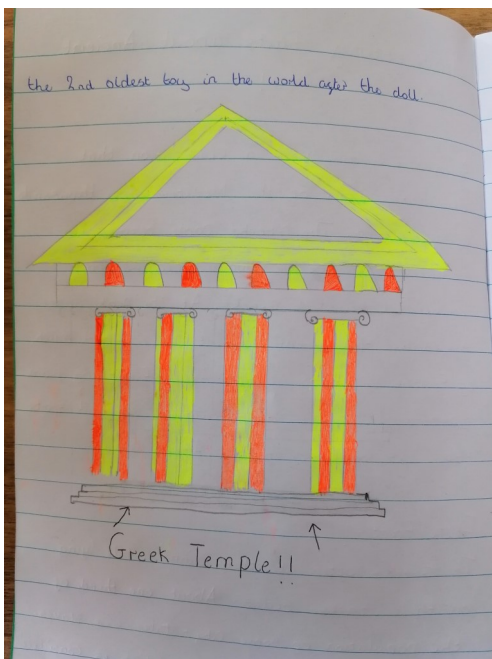 the 2nd oldest toy in the world after the doll.
Greek Temple!!